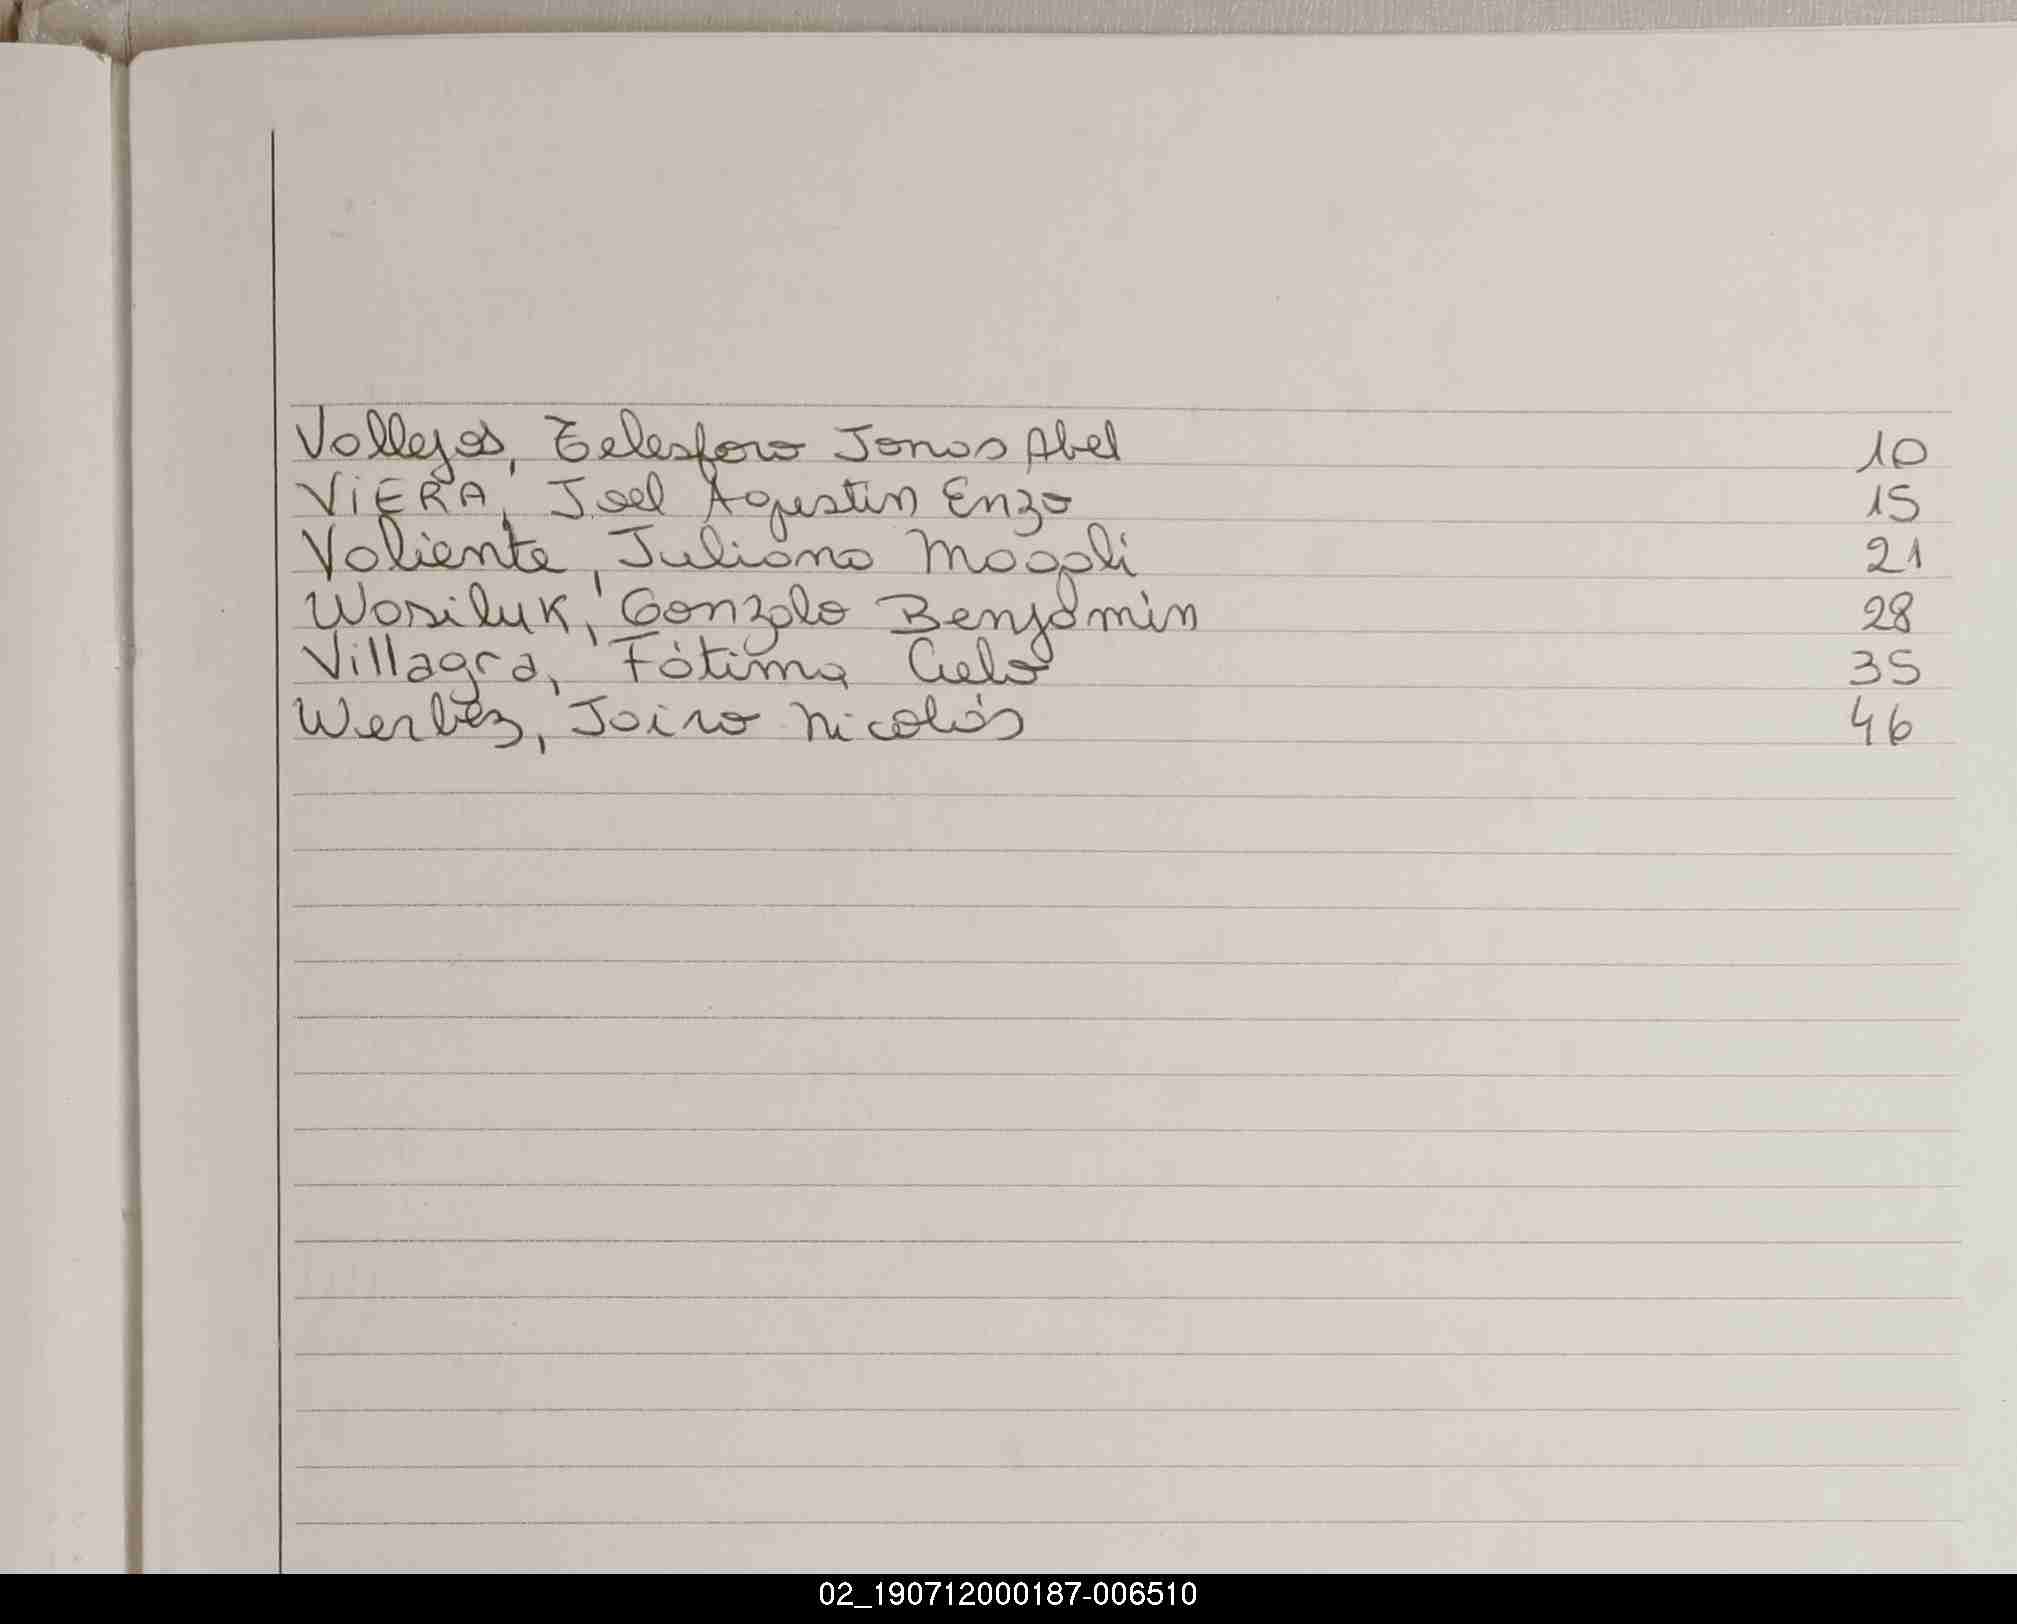 Vallejos, Telesforo Jonas Abel 10
VIERA, Joel Agustin Enzo 15
Valiente, Juliana Magali 21
Wasiluk, Gonzalo Benjamín 28
Villagra, Fátima Cielo 35
Werlez, Jairo Nicolás 46
02_190712000187-006510